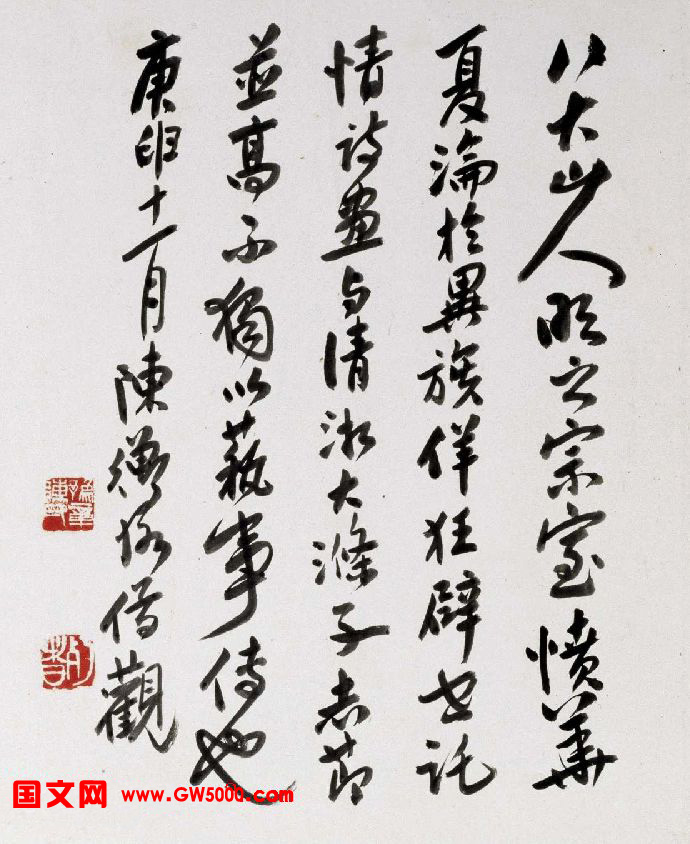 八大山人明之宗室憤華
夏淪於異族佯狂辟世託
情詩畫与清湘大滌子志節
並高不獨以藝事傳也
庚申十一月陳衡恪借觀
国文网 www.GW5000.com